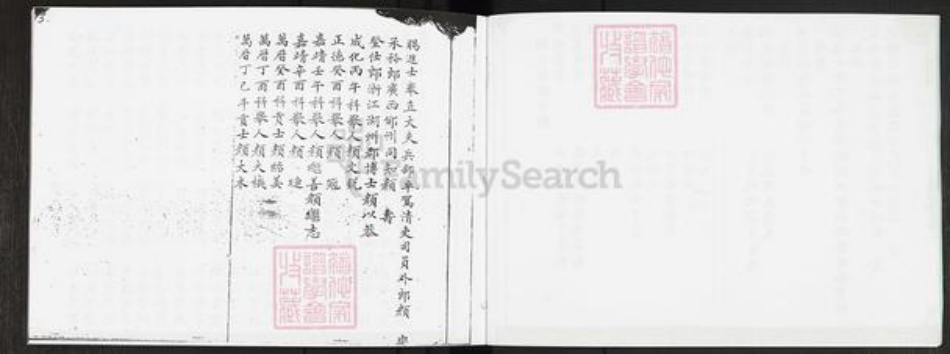 賜進士奉直大夫兵部車駕清吏司員外郎顏
承裕郎廣西 州同知顏 壽
登仕郎浙江湖州郡博士顏以恭
成化丙午科舉人顏文
正德癸酉科舉人顏 冠
嘉靖壬午科舉人顏繼善顏繼志
嘉靖辛酉科舉人顏 連
萬曆癸酉科貢士顏 美
萬曆丁酉科舉人顏大
萬曆丁巳年貢士顏大木
FamilySearch
譜學會
收藏
譜學會
收藏